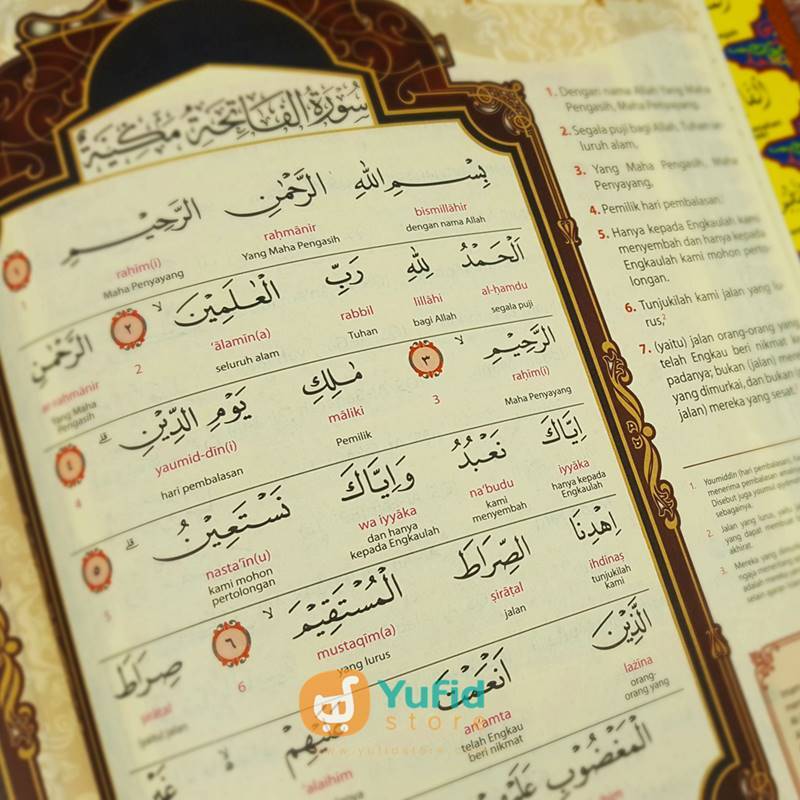 سُوْرَةُ الْفَاتِحَةِ مَكِّيَّةٌ
بِسْمِ اللهِ الرَّحْمٰنِ الرَّحِيْمِ
bismillāhir raḥmānir raḥīm(i)
dengan nama Allah Yang Maha Pengasih Maha Penyayang
١
1
اَلْحَمْدُ لِلّٰهِ رَبِّ الْعٰلَمِيْنَ ۙ ٢ الرَّحْمٰنِ
al-ḥamdu lillāhi rabbil ‘ālamīn(a) 2 ar-raḥmānir
segala puji bagi Allah Tuhan seluruh alam Yang Maha Pengasih
الرَّحِيْمِ ۙ ٣ مٰلِكِ يَوْمِ الدِّيْنِ ۗ ٤
raḥīm(i) 3 māliki yaumid-dīn(i) 4
Maha Penyayang Pemilik hari pembalasan
اِيَّاكَ نَعْبُدُ وَاِيَّاكَ نَسْتَعِيْنُ ۗ ٥
iyyāka na‘budu wa iyyāka nasta‘īn(u) 5
hanya kepada Engkaulah kami menyembah dan hanya kepada Engkaulah kami mohon pertolongan
اِهْدِنَا الصِّرَاطَ الْمُسْتَقِيْمَ ۙ ٦ صِرَاطَ
ihdinaṣ ṣirāṭal mustaqīm(a) 6 ṣirāṭal
tunjukilah kami jalan yang lurus (yaitu) jalan
الَّذِيْنَ اَنْعَمْتَ عَلَيْهِمْ ەۙ غَيْرِ
lażīna an‘amta ‘alaihim
orang-orang yang telah Engkau beri nikmat
الْمَغْضُوْبِ عَلَيْهِمْ
Yufid
store
1. Dengan nama Allah Yang Maha
Pengasih, Maha Penyayang.
2. Segala puji bagi Allah, Tuhan se-
luruh alam,
3. Yang Maha Pengasih, Maha
Penyayang,
4. Pemilik hari pembalasan.¹
5. Hanya kepada Engkaulah kami
menyembah dan hanya kepada
Engkaulah kami mohon perto-
longan.
6. Tunjukilah kami jalan yang lu-
rus,²
7. (yaitu) jalan orang-orang yang
telah Engkau beri nikmat
padanya; bukan (jalan) mereka
yang dimurkai, dan bukan (pula
jalan) mereka yang sesat.
1. Youmiddīn (hari pembalasan),
menerima pembalasan
Disebut juga
sebagainya.
2. Jalan yang lurus, yaitu
yang dapat membuat
akhirat.
3. Mereka yang dimurkai